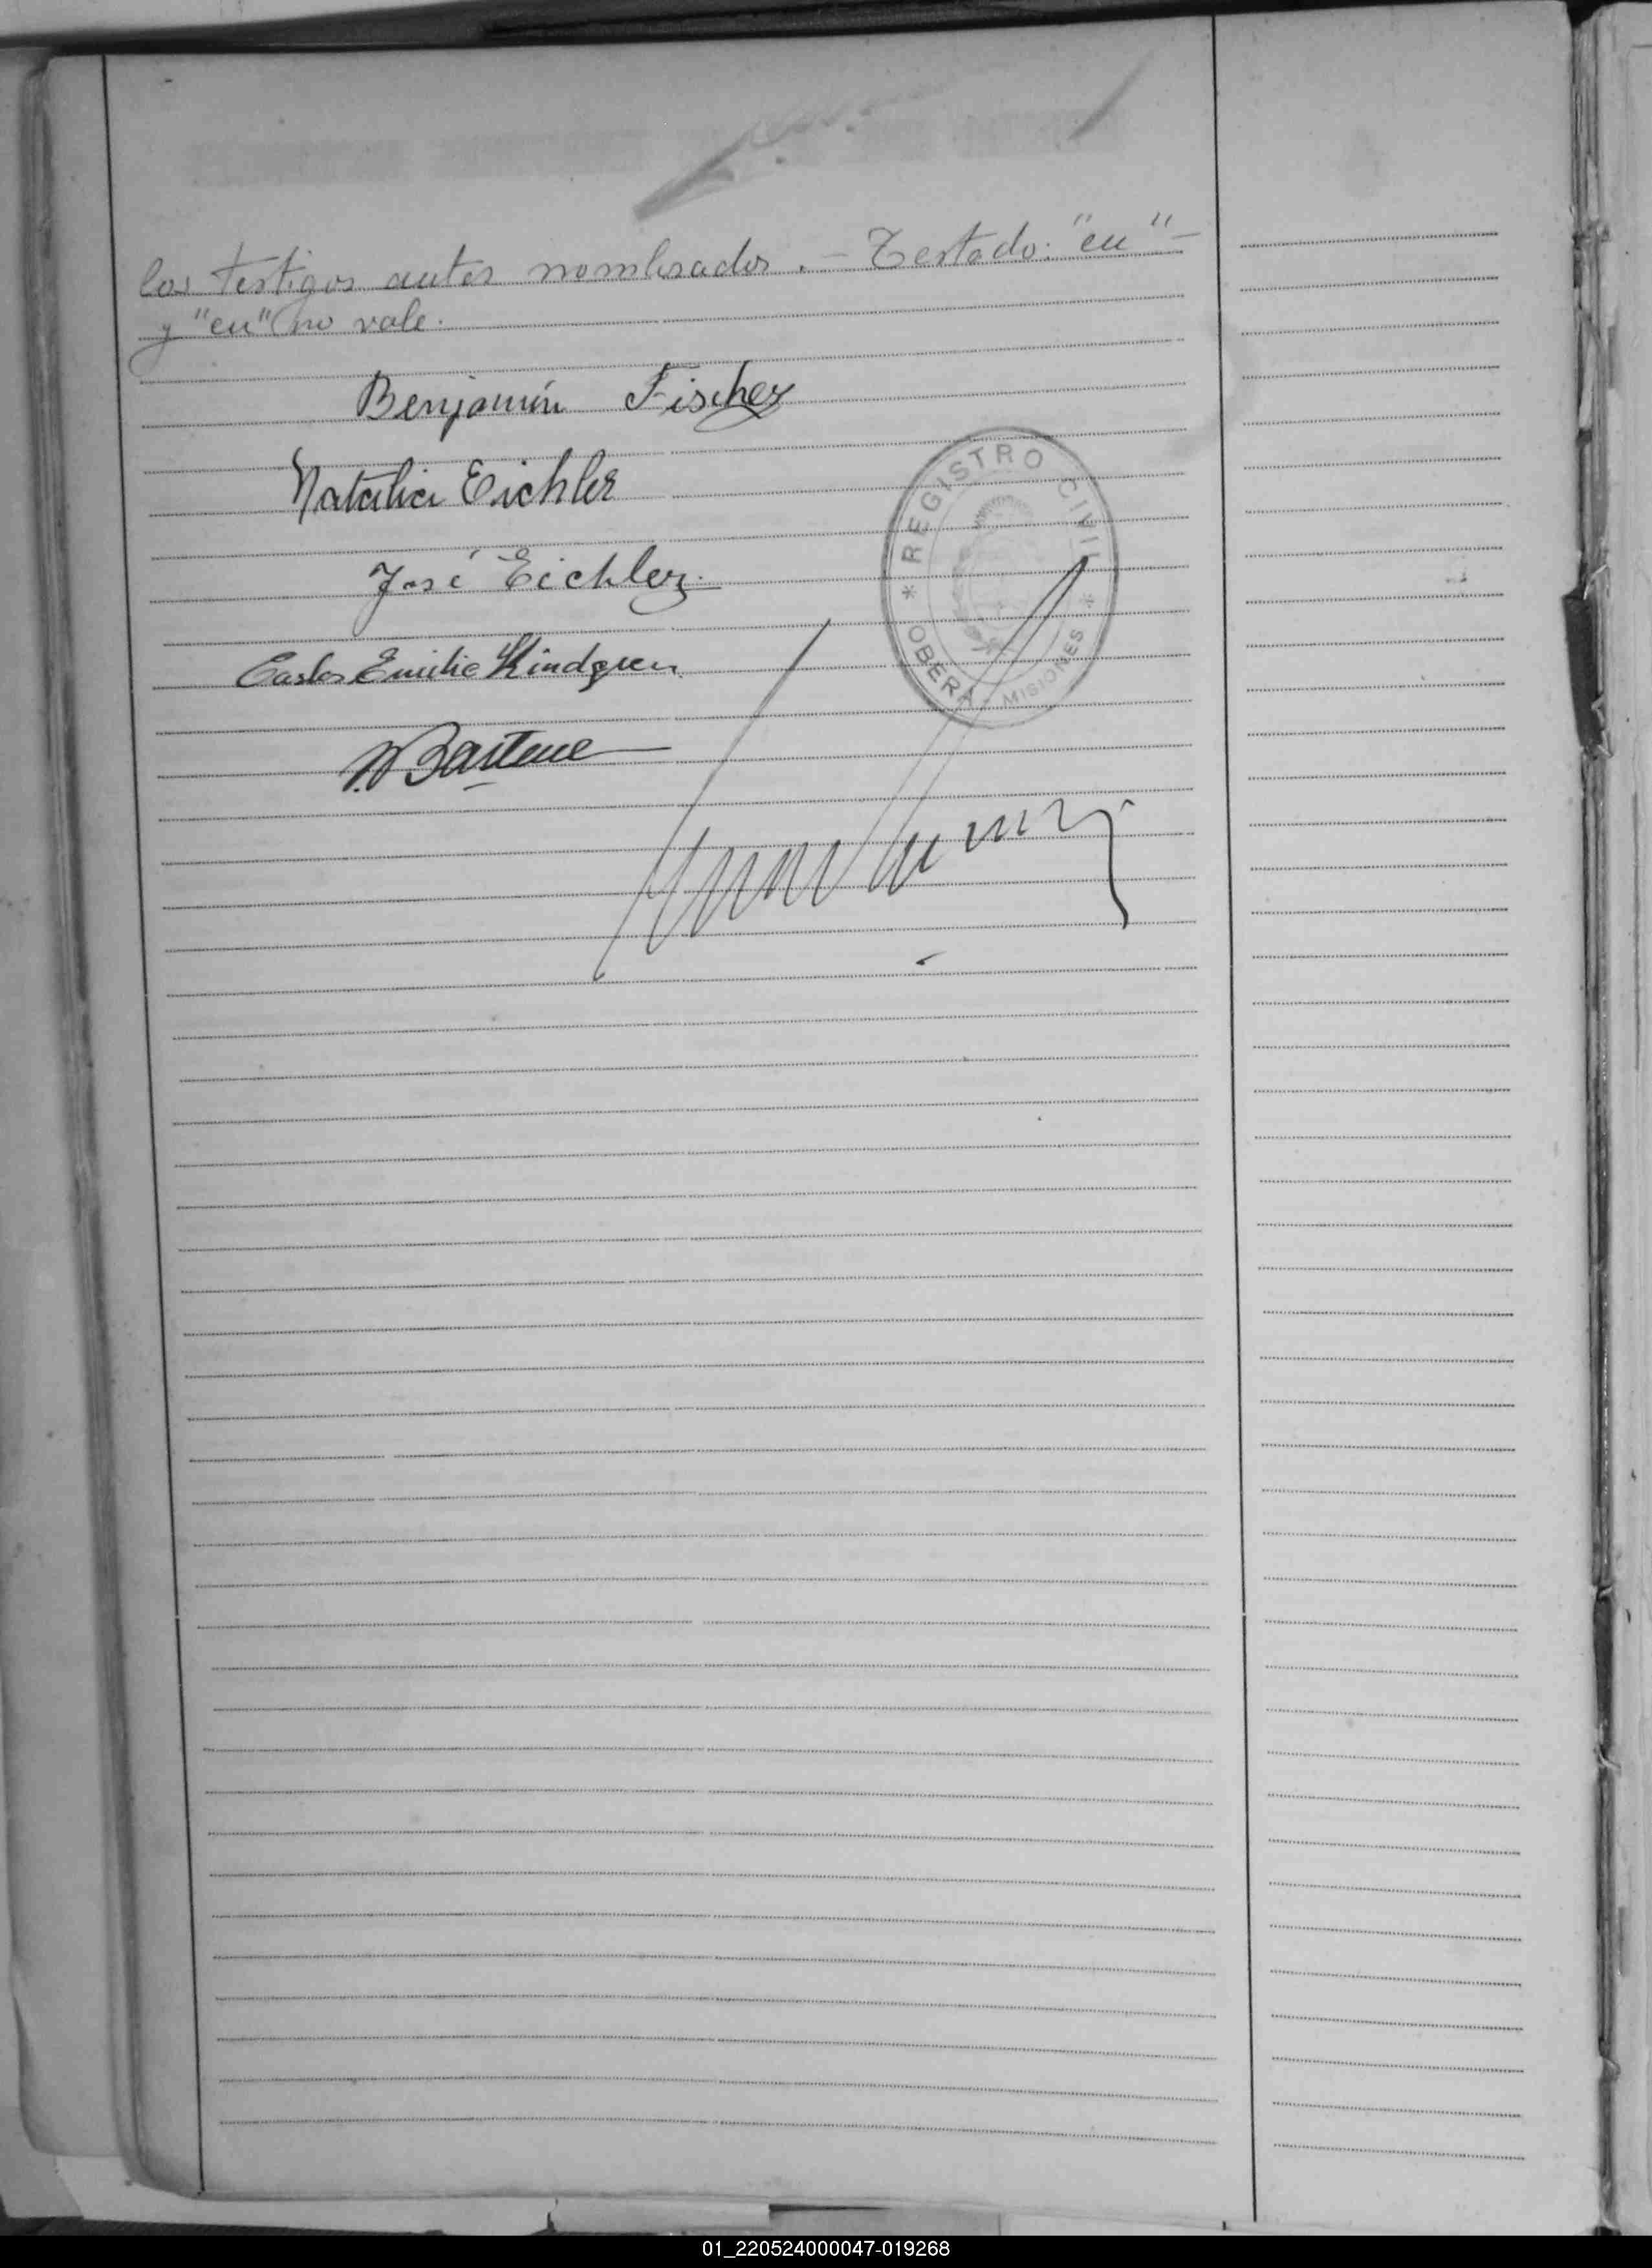 los testigos antes nombrados.– Testado: "en"–
y "en" no vale.
Benjamín Fischer
Natalia Eichler
José Eichler.
Carlos Emilio Lindgren
REGISTRO CIVIL
OBERÁ - MISIONES
01_220524000047-019268